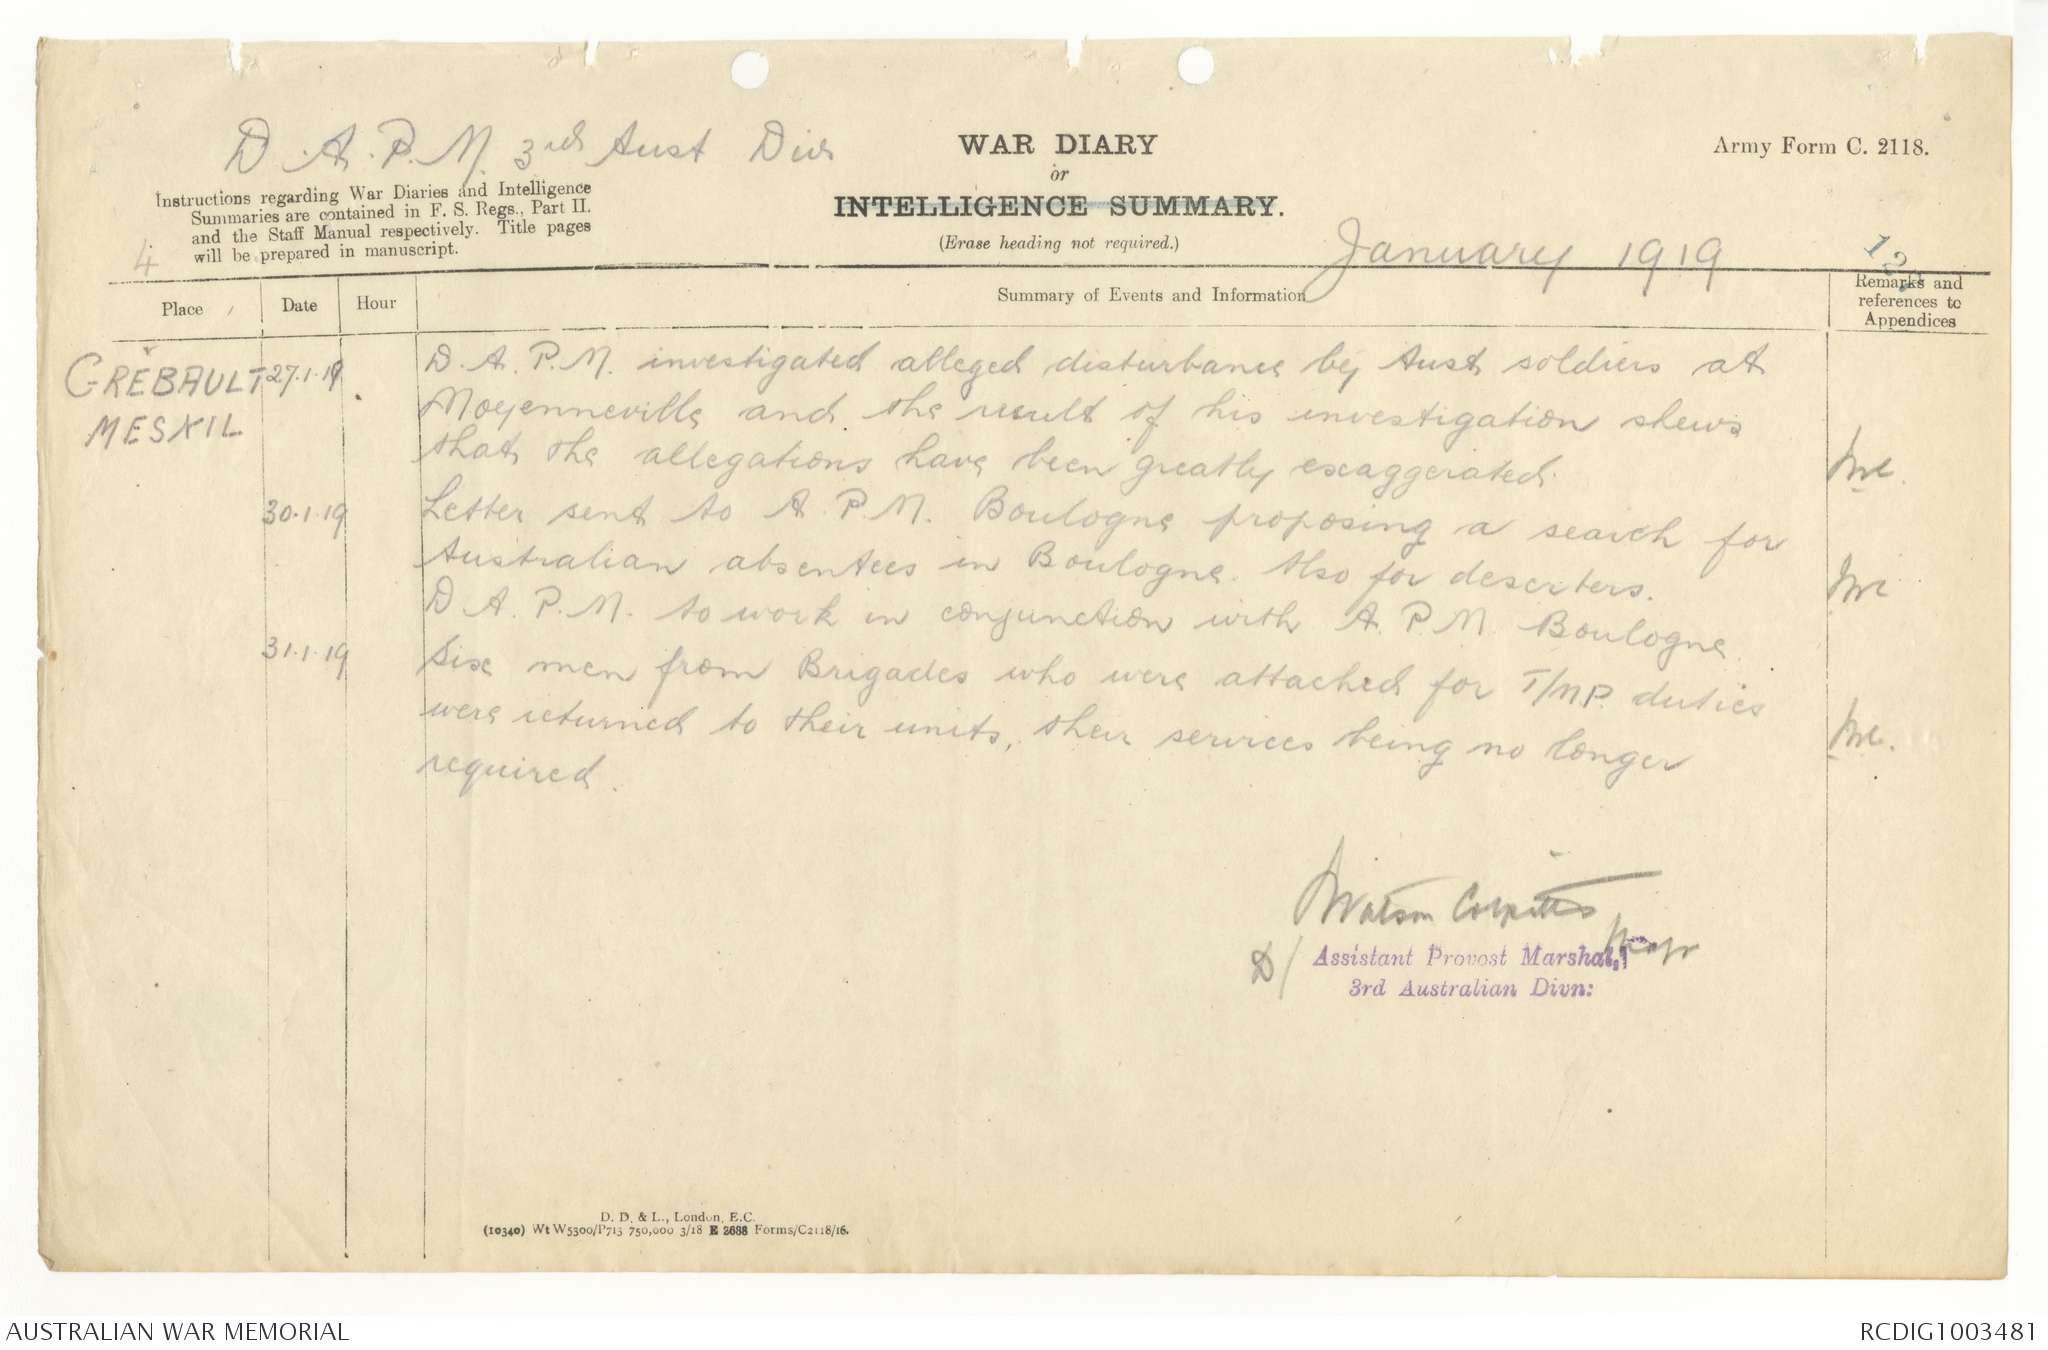 D. A. P. M. 3rd Aust Div
WAR DIARY
or
INTELLIGENCE SUMMARY.
(Erase heading not required.)
Army Form C. 2118.
Instructions regarding War Diaries and Intelligence
Summaries are contained in F. S. Regs., Part II.
and the Staff Manual respectively. Title pages
will be prepared in manuscript.
4
January 1919
12
Place Date Hour Summary of Events and Information Remarks and
references to
Appendices
GREBAULT 27.1.19 D. A. P. M. investigated alleged disturbance by Aust soldiers at
MESNIL Moyenneville and the result of his investigation shews
that the allegations have been greatly exaggerated.
30.1.19 Letter sent to A. P. M. Boulogne proposing a search for
Australian absentees in Boulogne. Also for deserters.
D A. P. M. to work in conjunction with A. P. M. Boulogne.
31.1.19 Six men from Brigades who were attached for T/M.P. duties
were returned to their units, their services being no longer
required.
Watson Corpitts
Major
D/ Assistant Provost Marshal,
3rd Australian Divn:
D. D. & L., London, E.C.
(10340) Wt W5300/P713 750,000 3/18 E 2688 Forms/C2118/16.
AUSTRALIAN WAR MEMORIAL
RCDIG1003481